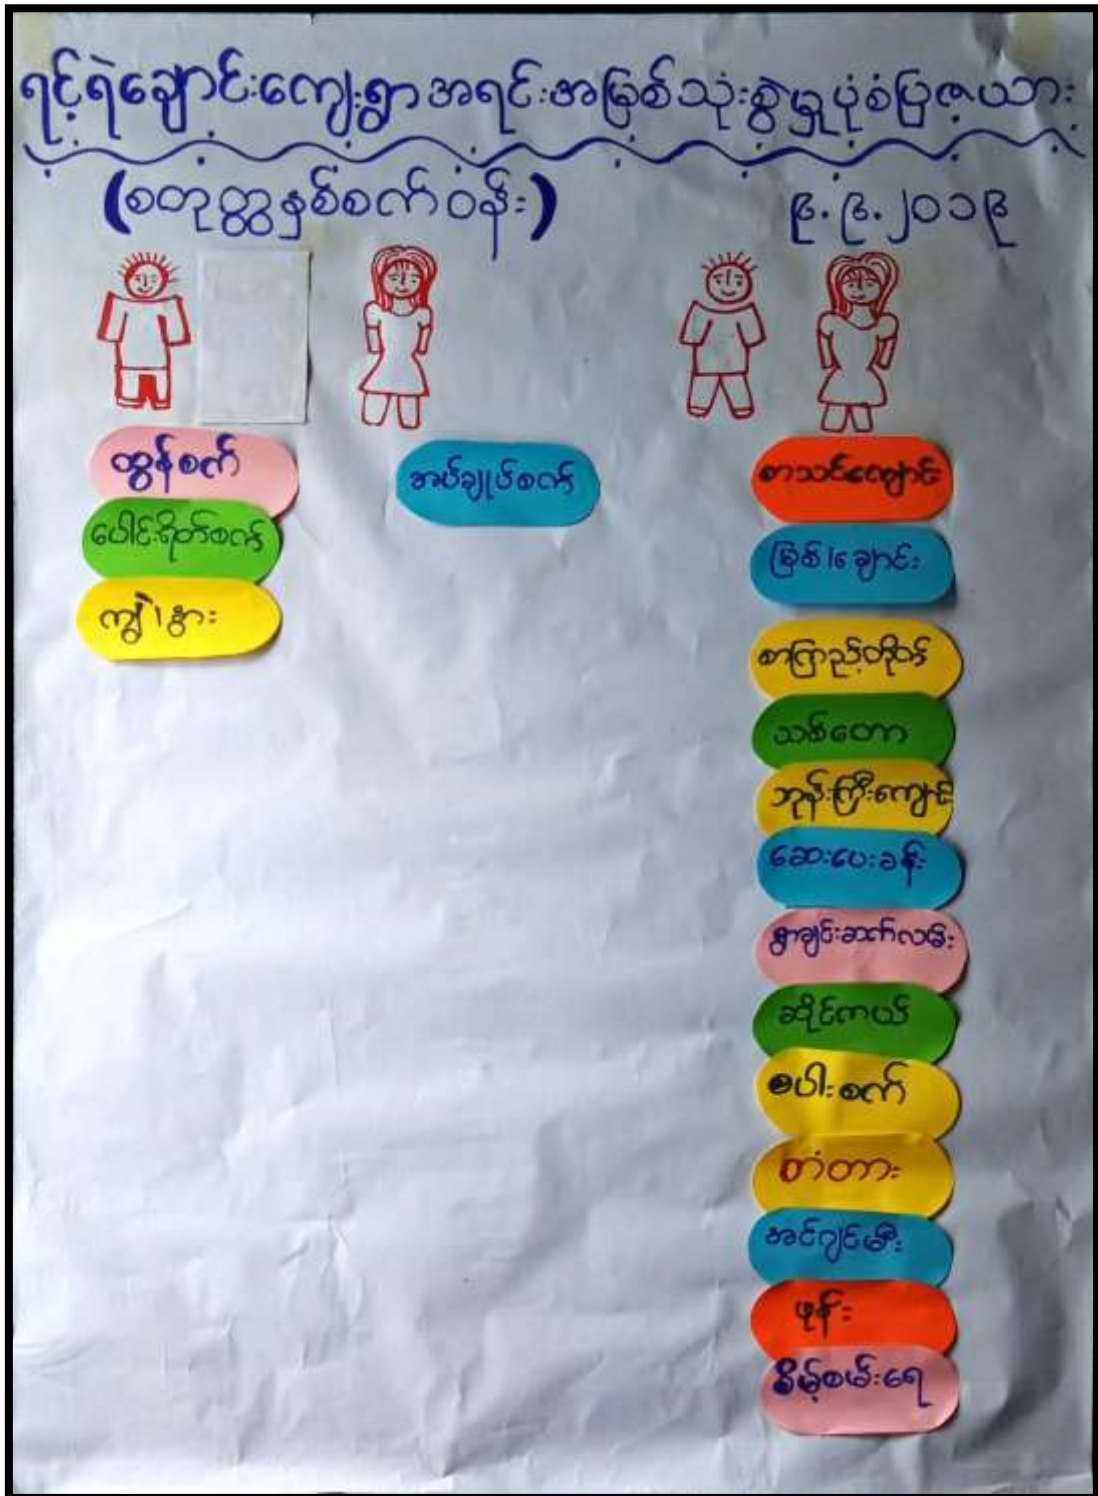 ရင့်ရဲချောင်းကျေးရွာအရင်းအမြစ်သုံးစွဲမှုပုံစံပြဇယား
(စတုတ္ထနှစ်စက်ဝန်း)
၉.၉.၂၀၁၉
ထွန်စက်
ပေါင်းရိတ်စက်
ကျွဲ/နွား
အပ်ချုပ်စက်
စာသင်ကျောင်း
မြစ်/ချောင်း
စာကြည့်တိုက်
သစ်တော
ဘုန်းကြီးကျောင်း
ဆေးပေးခန်း
ရွာချင်းဆက်လမ်း
ဆိုင်ကယ်
စပါးစက်
တံတား
အင်ဂျင်မီး
ဖုန်း
စိမ့်စမ်းရေ